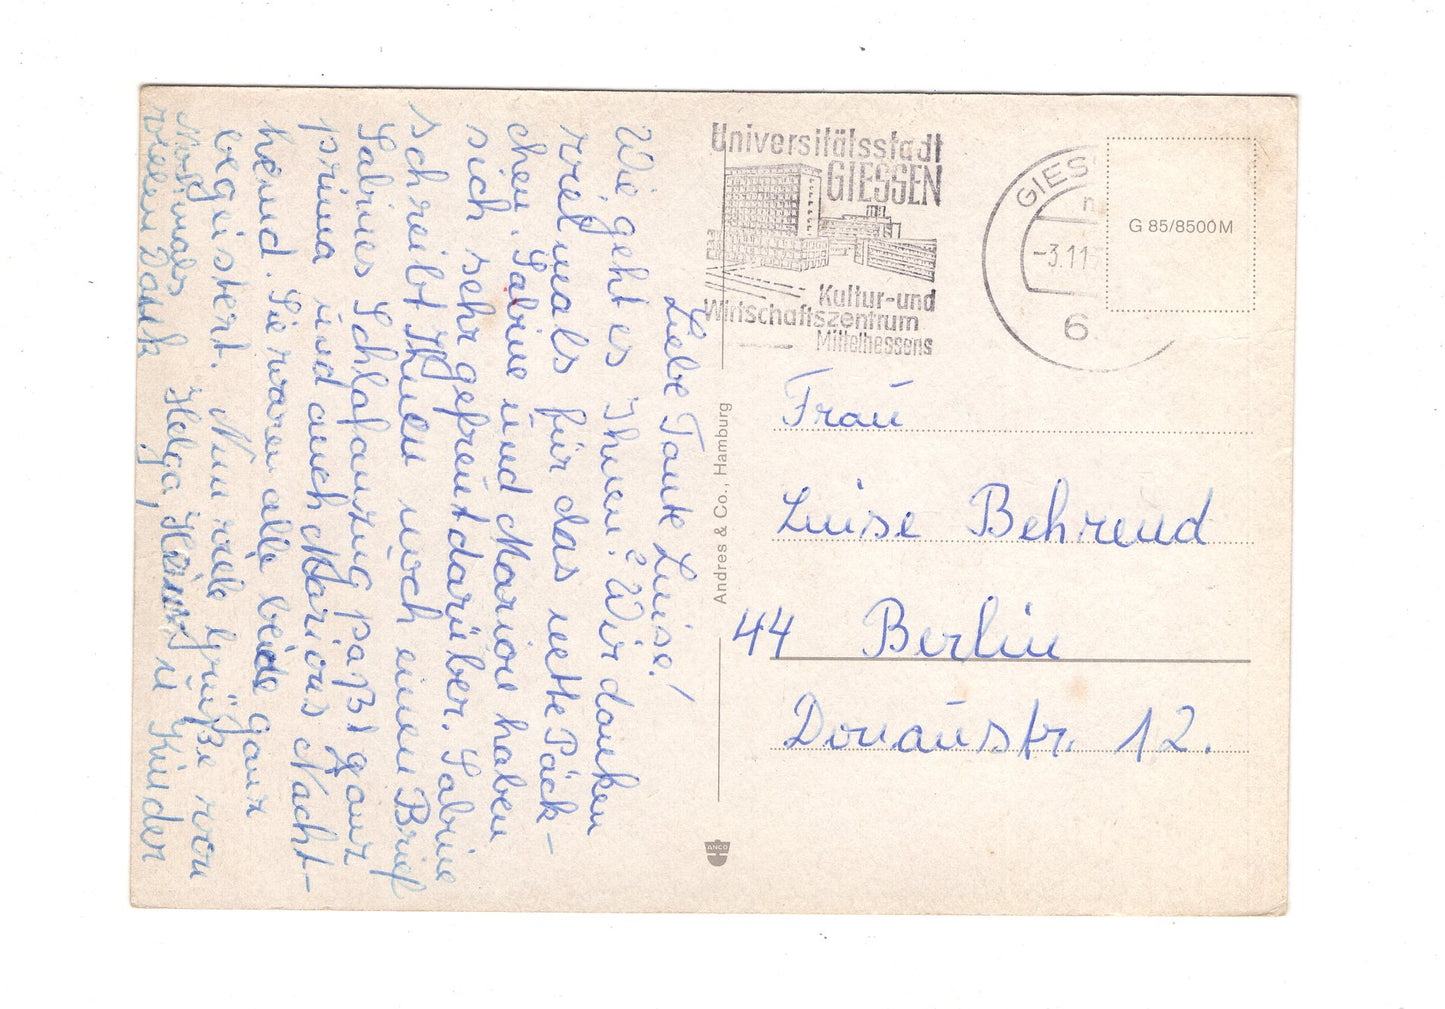 Liebe Tante Luise!
Wie geht es Ihnen? Wir danken
vielmals für das nette Päck-
chen. Sabine und Marion haben
sich sehr gefreut darüber. Sabine
schreibt Ihnen noch einen Brief
Sabines Schlafanzug paßt ganz
prima und auch Marions Nacht-
hemd. Sie waren alle beide ganz
begeistert. Nun viele Grüße von
Helga, Heinz u Kinder
Nochmals
vielen Dank
Universitätsstadt
GIESSEN
Kultur-und
Wirtschaftszentrum
Mittelhessens
GIES
-3.11
6.
G 85/8500M
Andres & Co., Hamburg
ANCO
Frau
Luise Behrend
44 Berlin
Donaustr. 12.